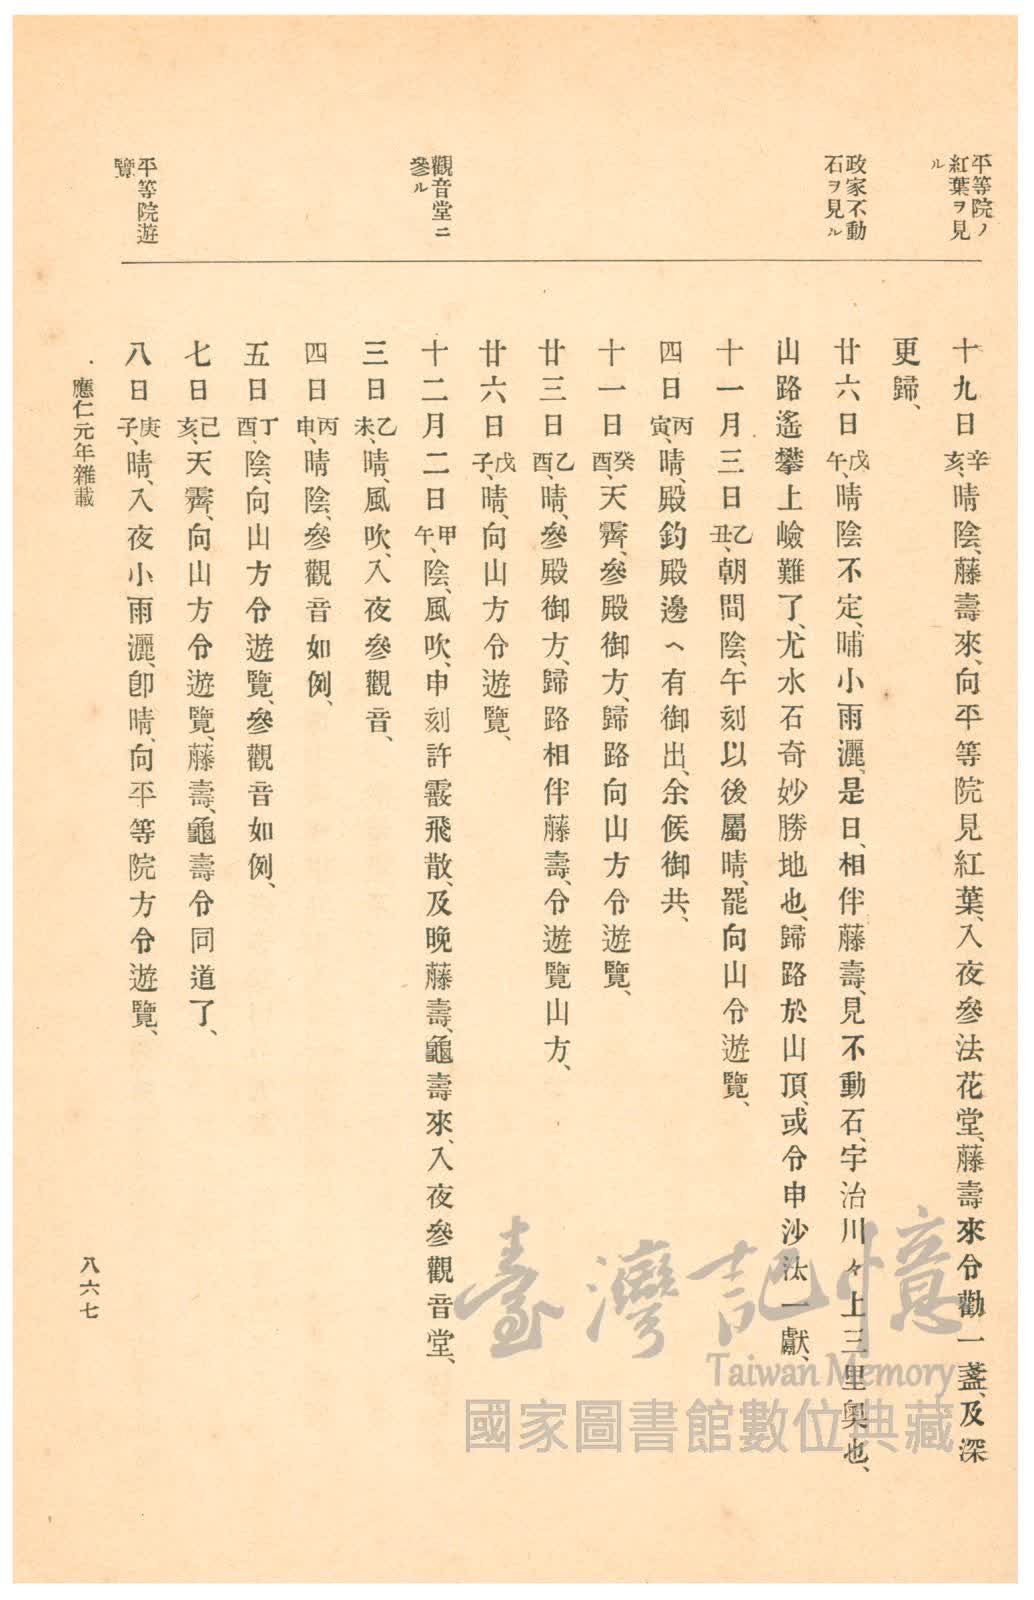 平等院ノ
紅葉ヲ見
ル
政家不動
石ヲ見ル
觀音堂ニ
參ル
平等院遊
覽
十九日辛亥、晴陰、藤壽來、向平等院見紅葉、入夜參法花堂、藤壽來令勸一盞、及深
更歸、
廿六日戊午、晴陰不定、晡小雨灑、是日、相伴藤壽、見不動石、宇治川々上三里奧也、
山路遙攀上嶮難了、尤水石奇妙勝地也、歸路於山頂、或令申沙汰一獻、
十一月三日乙丑、朝間陰、午刻以後屬晴、罷向山令遊覽、
四日丙寅、晴、殿釣殿邊ヘ有御出、余候御共、
十一日癸酉、天霽、參殿御方、歸路向山方令遊覽、
廿三日乙酉、晴、參殿御方、歸路相伴藤壽、令遊覽山方、
廿六日戊子、晴、向山方令遊覽、
十二月二日甲午、陰、風吹、申刻許霰飛散、及晚藤壽、龜壽來、入夜參觀音堂、
三日乙未、晴、風吹、入夜參觀音、
四日丙申、晴陰、參觀音如例、
五日丁酉、陰、向山方令遊覽、參觀音如例、
七日己亥、天霽、向山方令遊覽、藤壽、龜壽令同道了、
八日庚子、晴、入夜小雨灑、卽晴、向平等院方令遊覽、
應仁元年雜載
八六七
臺灣記憶
Taiwan Memory
國家圖書館數位典藏